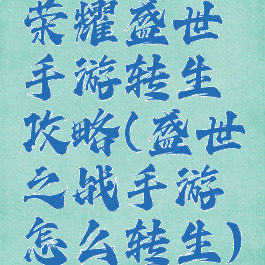 荣耀盛世
手游转生
攻略(盛世
之战手游
怎么转生)